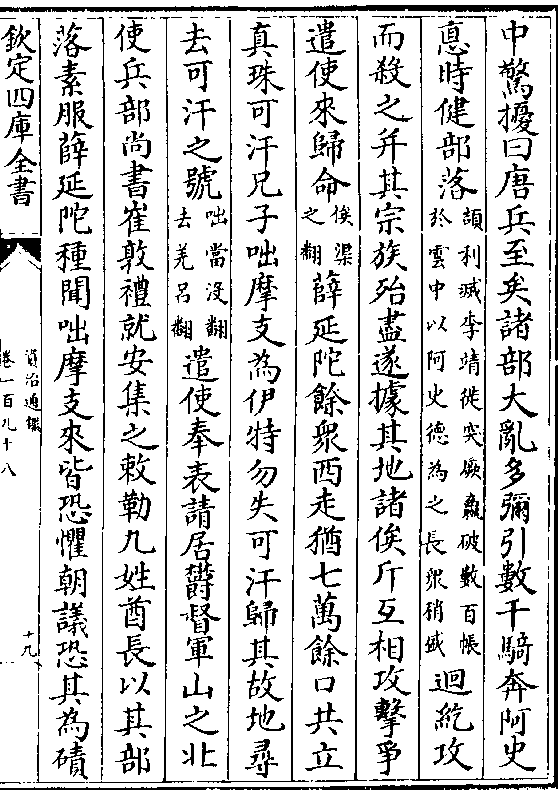 中驚擾曰唐兵至矣諸部大亂多彌引數千騎奔阿史
悳時健部落
頡利滅李靖徙突厥羸破數百帳
於雲中以阿史德為之長衆稍盛
迴紇攻
而殺之并其宗族殆盡遂據其地諸俟斤互相攻擊爭
遣使來歸命
俟渠
之翻
薛延陀餘衆西走猶七萬餘口共立
真珠可汗兄子咄摩支為伊特勿失可汗歸其故地尋
去可汗之號
咄當沒翻
去羌呂翻
遣使奉表請居欝督軍山之北
使兵部尚書崔敦禮就安集之敕勒九姓酋長以其部
落素服薛延陀種聞咄摩支來皆恐懼朝議恐其為磧
欽定四庫全書
資治通鑑
卷一百九十八
十九